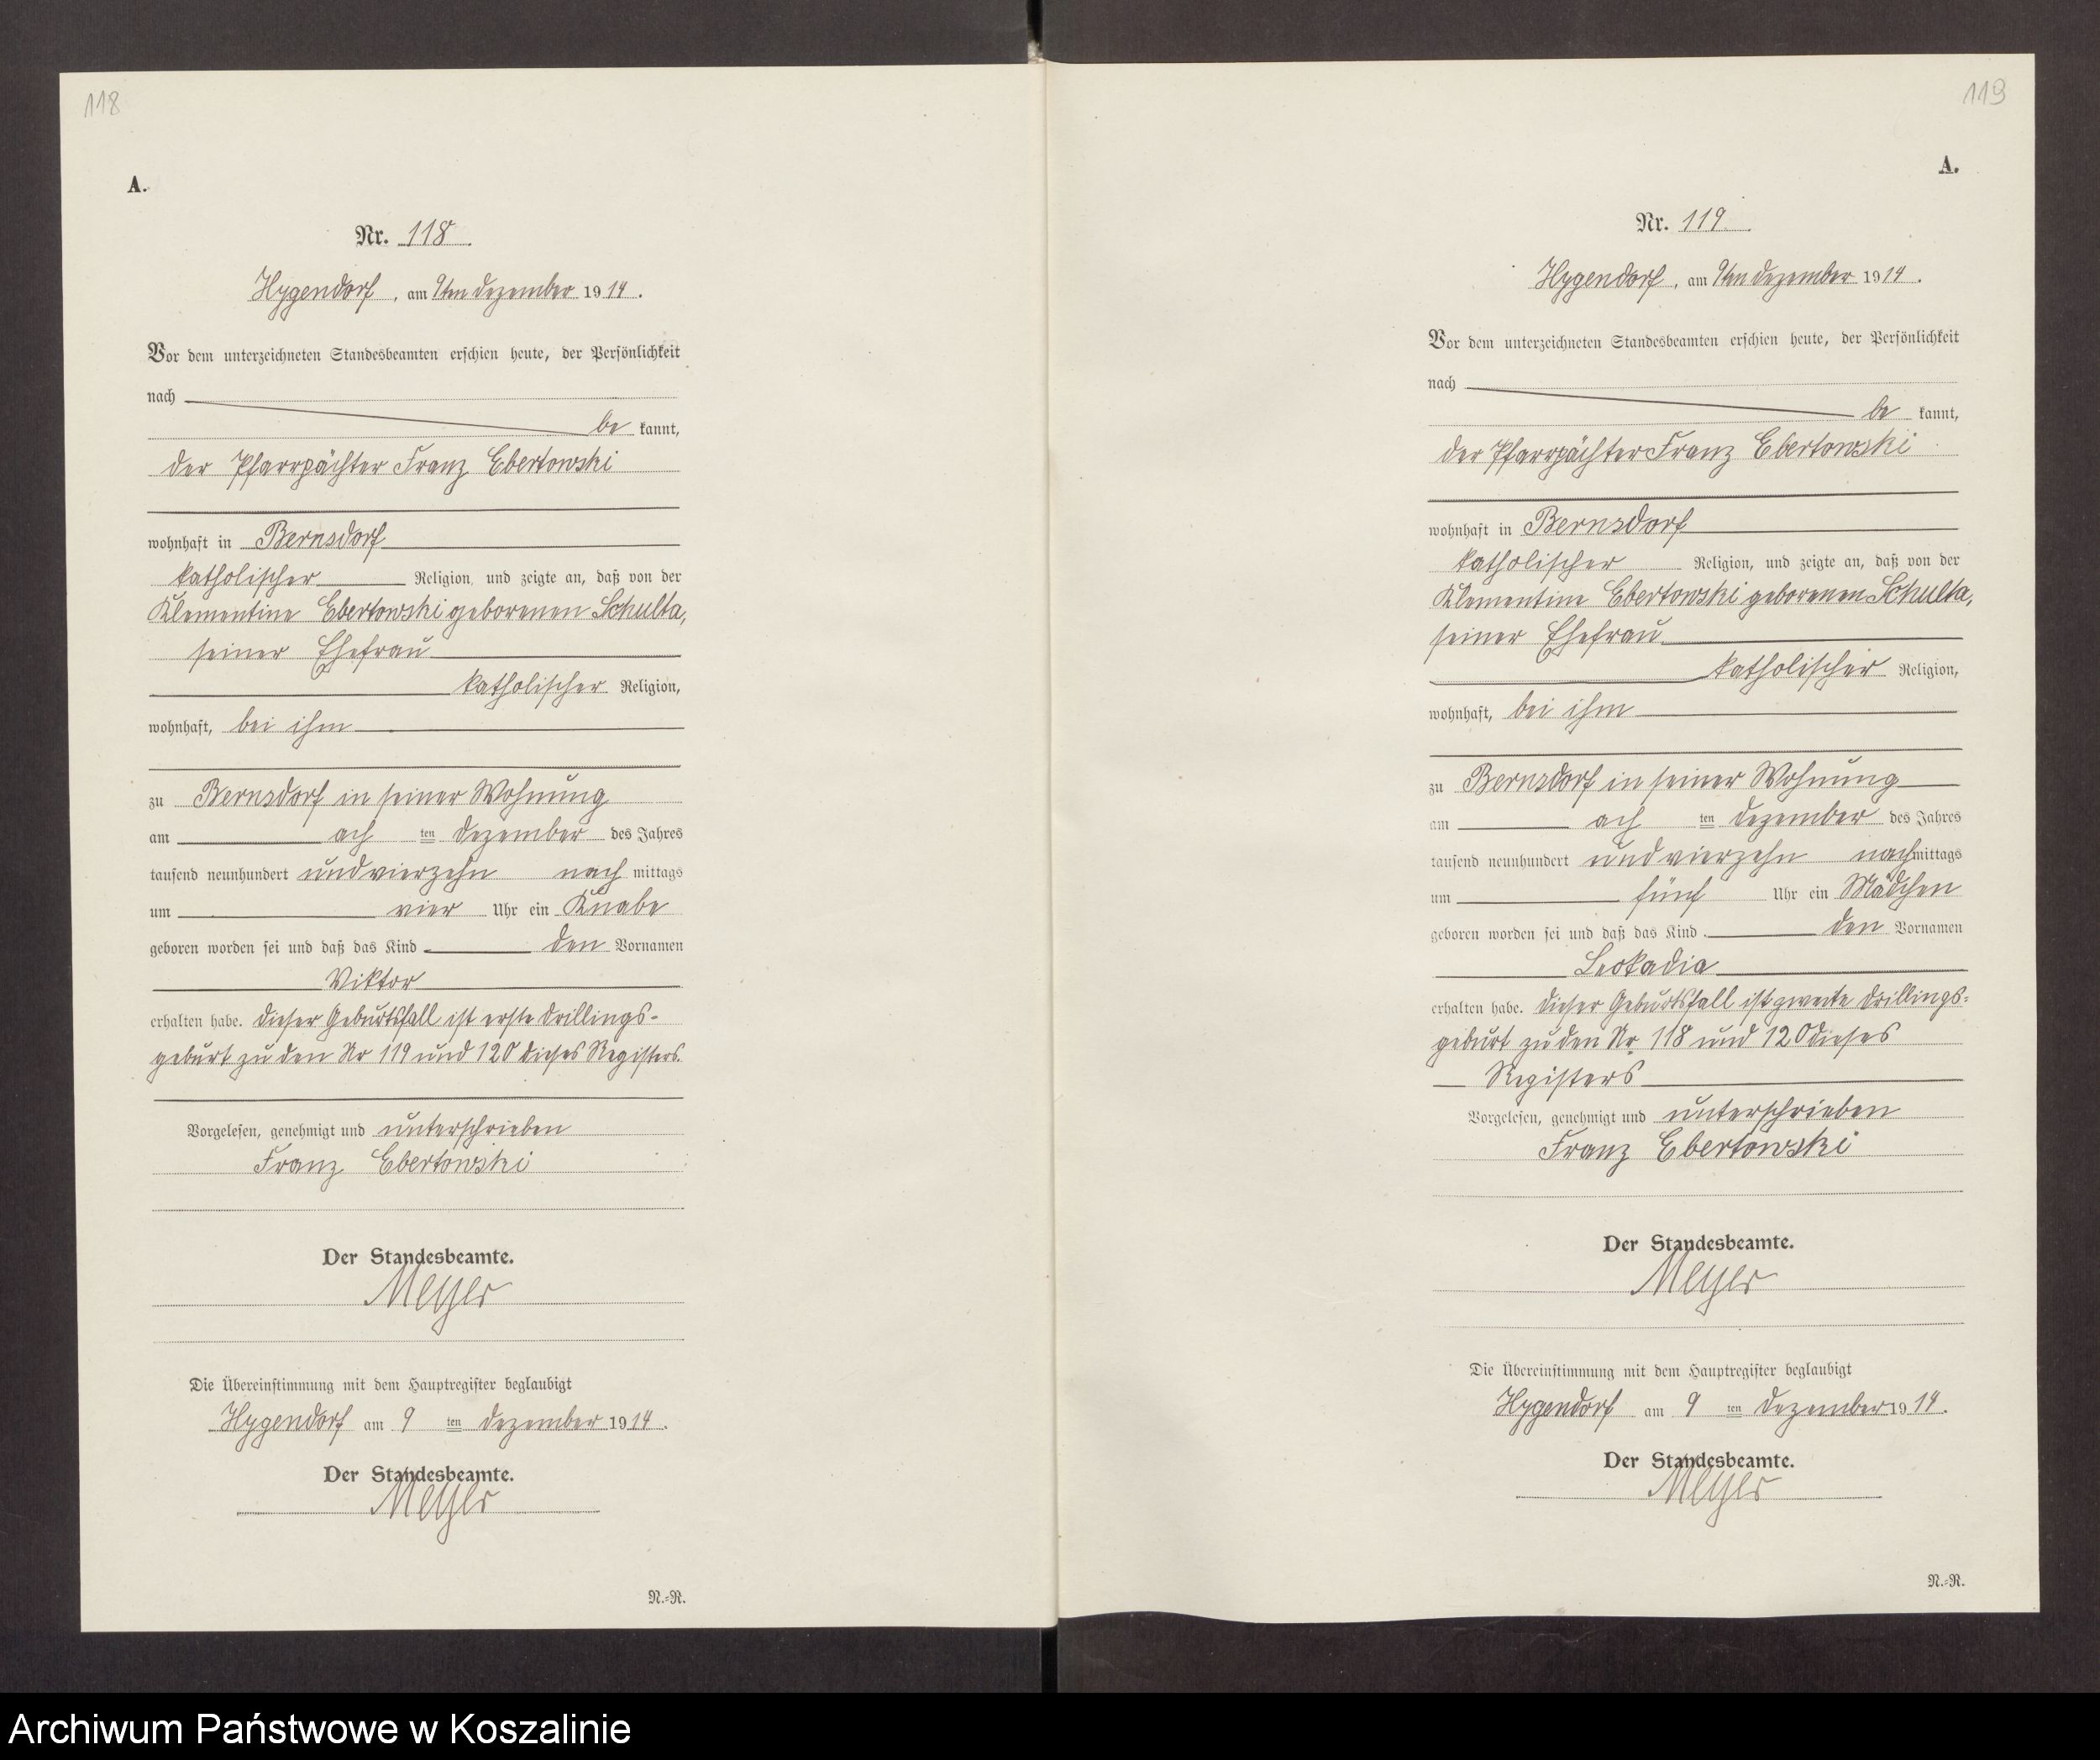 118
A.
Nr. 118.
Hygendorf, am 9ten Dezember 1914.
Vor dem unterzeichneten Standesbeamten erschien heute, der Persönlichkeit
nach
be kannt,
der Pfarrpächter Franz Ebertowski
wohnhaft in Bernsdorf
katholischer Religion, und zeigte an, daß von der
Klementine Ebertowski geborenen Schulta,
seiner Ehefrau
katholischer Religion,
wohnhaft, bei ihm
zu Bernsdorf in seiner Wohnung
am ach ten Dezember des Jahres
tausend neunhundert undvierzehn nach mittags
um vier Uhr ein Knabe
geboren worden sei und daß das Kind den Vornamen
Viktor
erhalten habe. Dieser Geburtsfall ist erste Drillings-
geburt zu den Nr 119 und 120 dieses Registers.
Vorgelesen, genehmigt und unterschrieben
Franz Ebertowski
Der Standesbeamte.
Meyer
Die Übereinstimmung mit dem Hauptregister beglaubigt
Hygendorf am 9 ten Dezember 1914.
Der Standesbeamte.
Meyer
N.=R.
119
A.
Nr. 119.
Hygendorf, am 9ten Dezember 1914.
Vor dem unterzeichneten Standesbeamten erschien heute, der Persönlichkeit
nach
be kannt,
der Pfarrpächter Franz Ebertowski
wohnhaft in Bernsdorf
katholischer Religion, und zeigte an, daß von der
Klementine Ebertowski geborenen Schulta,
seiner Ehefrau
katholischer Religion,
wohnhaft, bei ihm
zu Bernsdorf in seiner Wohnung
am ach ten Dezember des Jahres
tausend neunhundert undvierzehn nachmittags
um fünf Uhr ein Mädchen
geboren worden sei und daß das Kind den Vornamen
Leokadia
erhalten habe. Dieser Geburtsfall ist zweite Drillings=
geburt zu den Nr. 118 und 120 dieses
Registers
Vorgelesen, genehmigt und unterschrieben
Franz Ebertowski
Der Standesbeamte.
Meyer
Die Übereinstimmung mit dem Hauptregister beglaubigt
Hygendorf am 9 ten Dezember 1914.
Der Standesbeamte.
Meyer
N.=R.
Archiwum Państwowe w Koszalinie